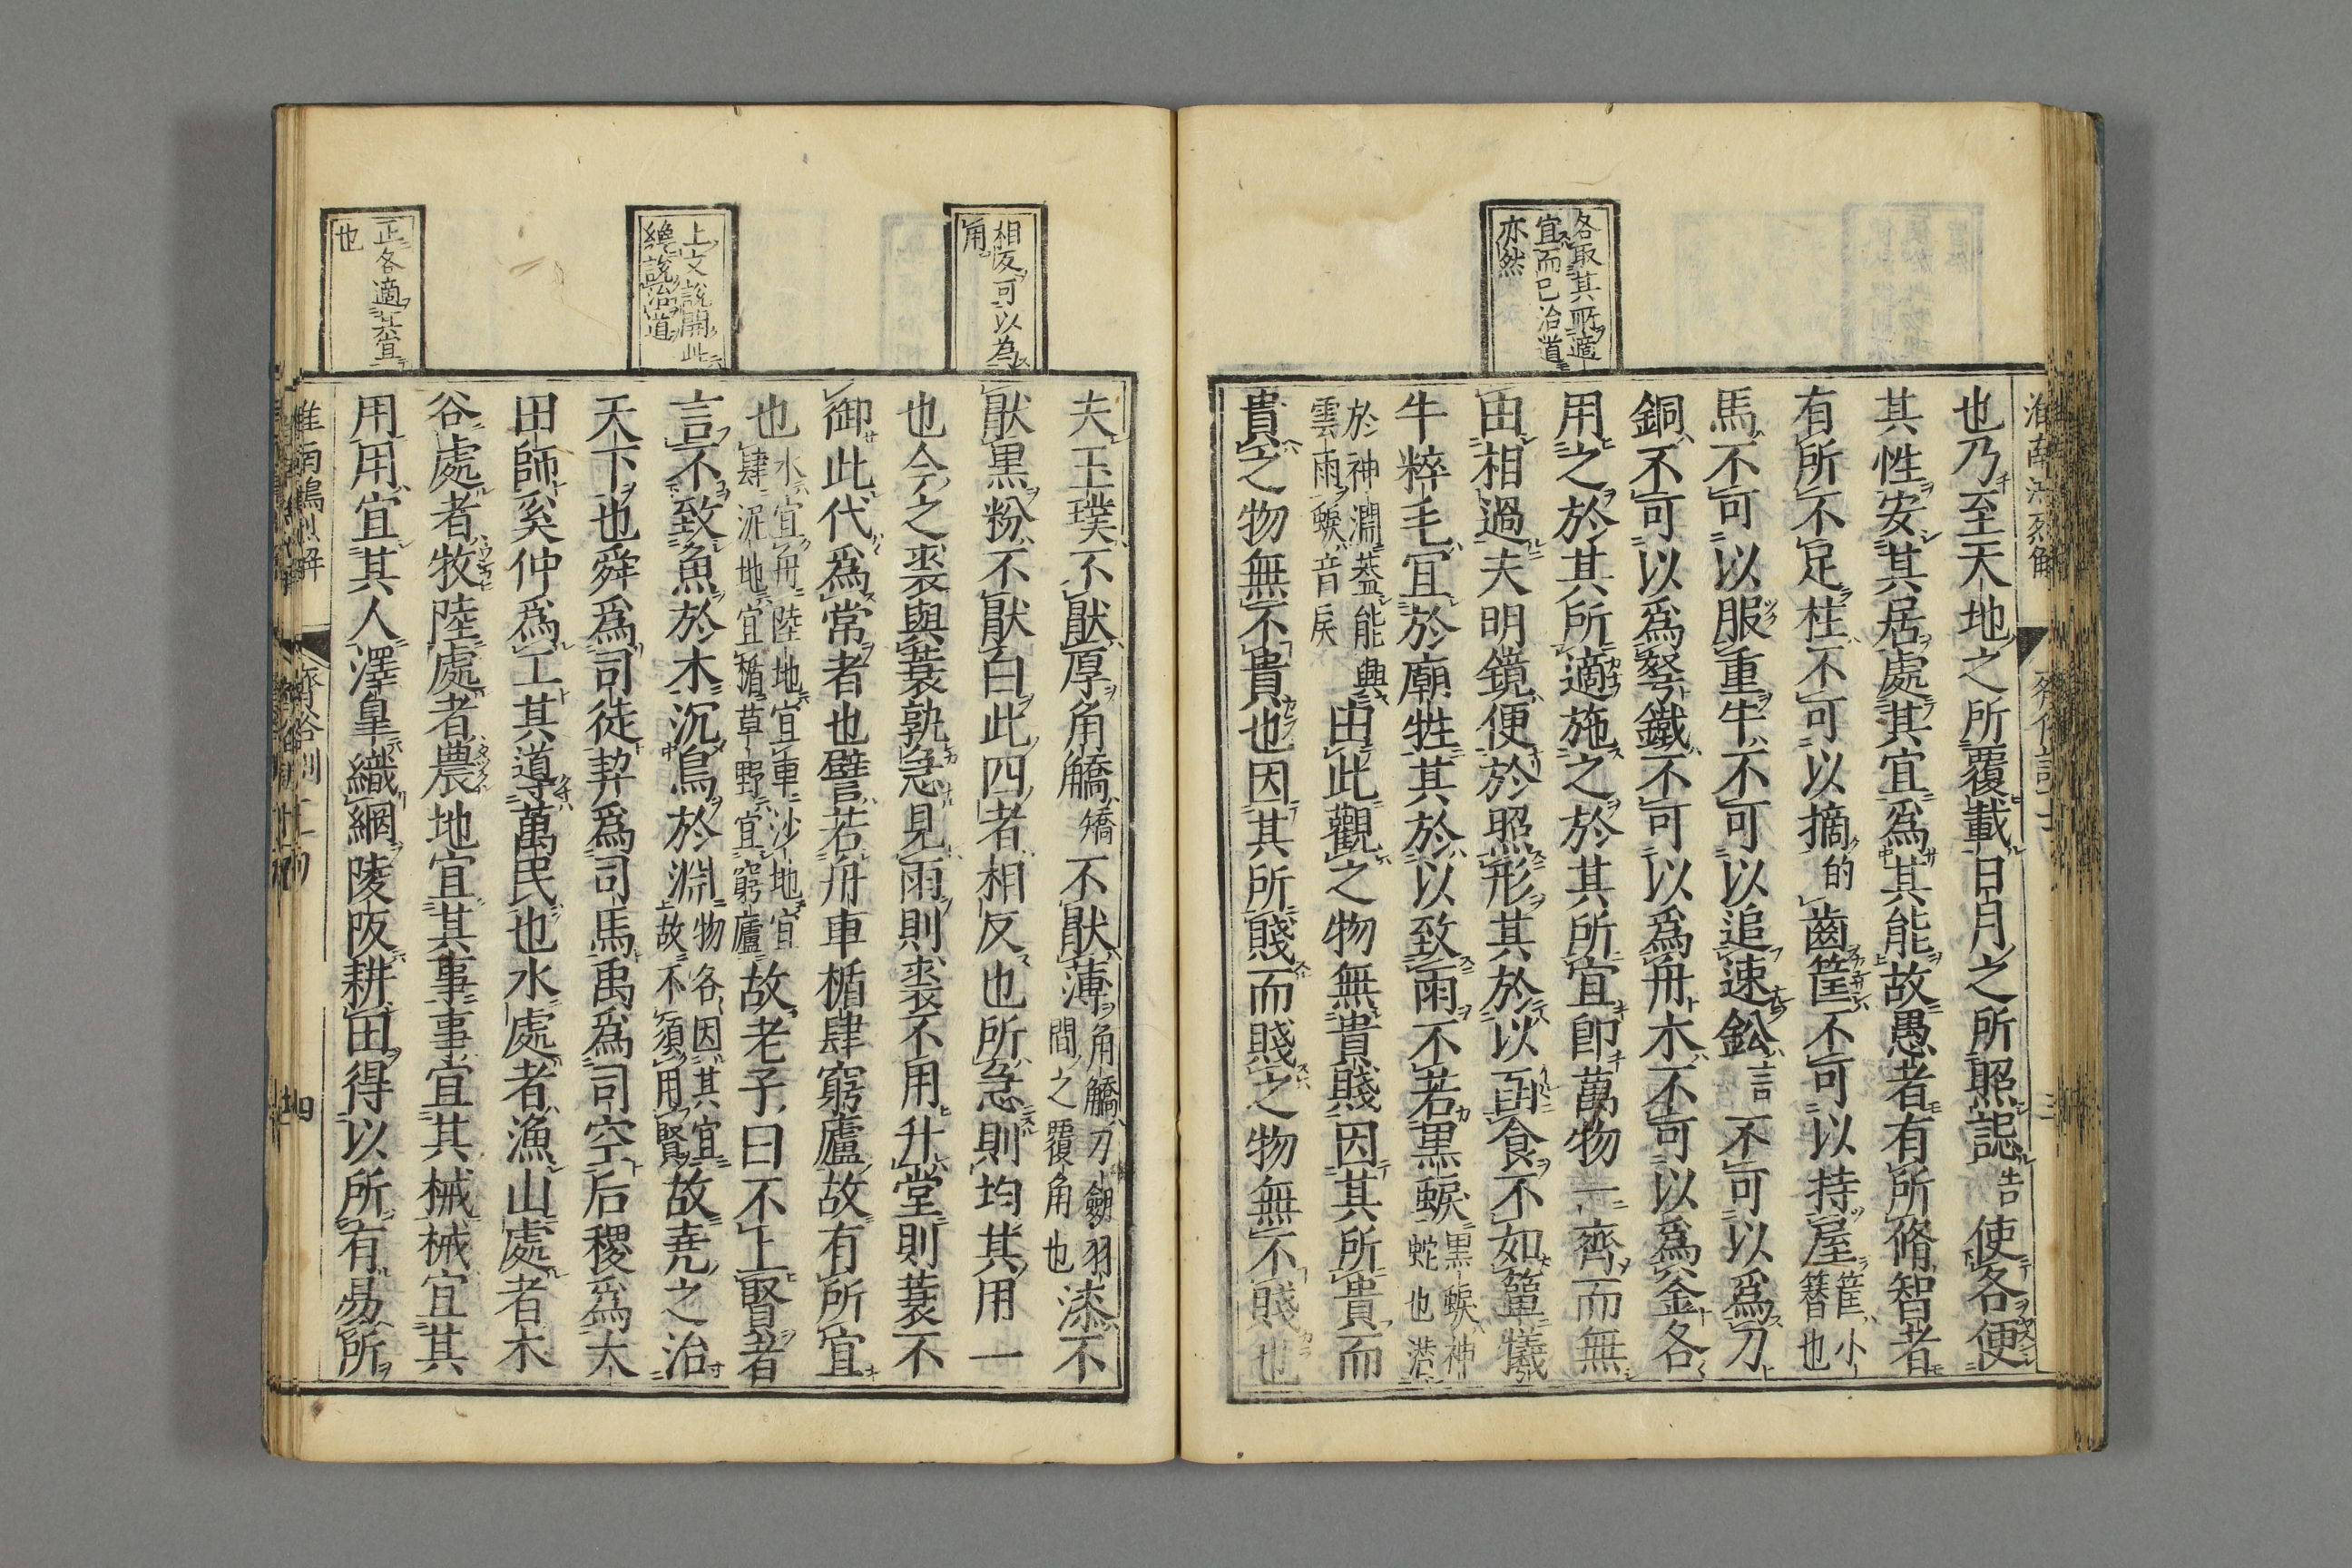 各取其所適
宜而已治道
亦然
也乃至天地之所覆載日月之所照誋告使各便
其性安其居處其宜爲其能故愚者有所脩智者
有所不足柱不可以摘的齒筐不可以持屋筐小簪也
馬不可以服重牛不可以追速鈆言不可以爲刀
銅不可以爲弩鐵不可以爲舟木不可以爲釜各
用之於其所適施之於其所宜即萬物一齊而無
由相過夫明鏡便於照形其於以函食不如簞犧
牛粹毛宜於廟牲其於以致雨不若黒蜧黒蜧神蛇也潜
於神淵蓋能興雲雨蜧音戾由此觀之物無貴賤因其所貴而
貴之物無不貴也因其所賤而賤之物無不賤也
相反可以為
角
上文說開此
總說治道
正各適其宜
也
夫玉璞不猒厚角䚩矯不猒薄角䚩刀劒羽間之覆角也漆不
猒黒粉不猒白此四者相反也所急則均其用一
也今之裘與蓑孰急見雨則裘不用升堂則蓑不
御此代爲常者也譬若舟車楯肆窮廬故有所宜
也水宜舟陸地宜車沙地宜肆泥地宜楯草野宜窮廬故老子曰不上賢者
言不致魚於木沉鳥於淵物各因其宜故不須用賢故堯之治
天下也舜爲司徒契爲司馬禹爲司空后稷爲大
田師奚仲爲工其導萬民也水處者漁山處者木
谷處者牧陸處者農地宜其事事宜其械械宜其
用用宜其人澤皐織網陵阪耕田得以所有易所